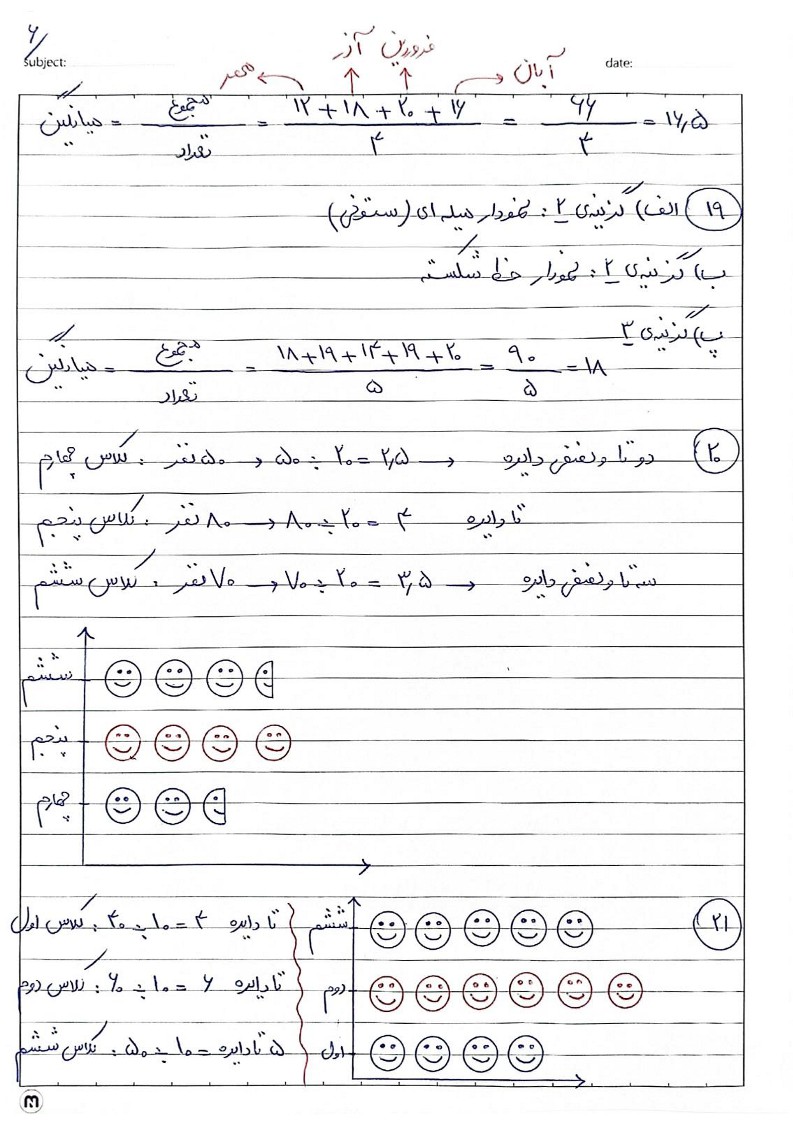 ۶
subject:
date:
مهر آذر فروردین آبان
میانگین = مجموع / تعداد = ۱۲ + ۱۸ + ۲۰ + ۱۶ / ۴ = ۶۶ / ۴ = ۱۶٫۵
۱۹ الف) گزینه‌ی ۲ : نمودار میله ای (ستونی)
ب) گزینه‌ی ۲ : نمودار خط شکسته
پ) گزینه‌ی ۳
میانگین = مجموع / تعداد = ۱۸+۱۹+۱۴+۱۹+۲۰ / ۵ = ۹۰ / ۵ = ۱۸
۲۰ کلاس چهارم : ۵۰ نفر → ۵۰ ÷ ۲۰ = ۲٫۵ → دو تا و نصفی دایره
کلاس پنجم : ۸۰ نفر → ۸۰ ÷ ۲۰ = ۴ تا دایره
کلاس ششم : ۷۰ نفر → ۷۰ ÷ ۲۰ = ۳٫۵ → سه تا و نصفی دایره
ششم
پنجم
چهارم
۲۱
کلاس اول : ۴۰ ÷ ۱۰ = ۴ تا دایره
کلاس دوم : ۶۰ ÷ ۱۰ = ۶ تا دایره
کلاس ششم : ۵۰ ÷ ۱۰ = ۵ تا دایره
ششم
دوم
اول